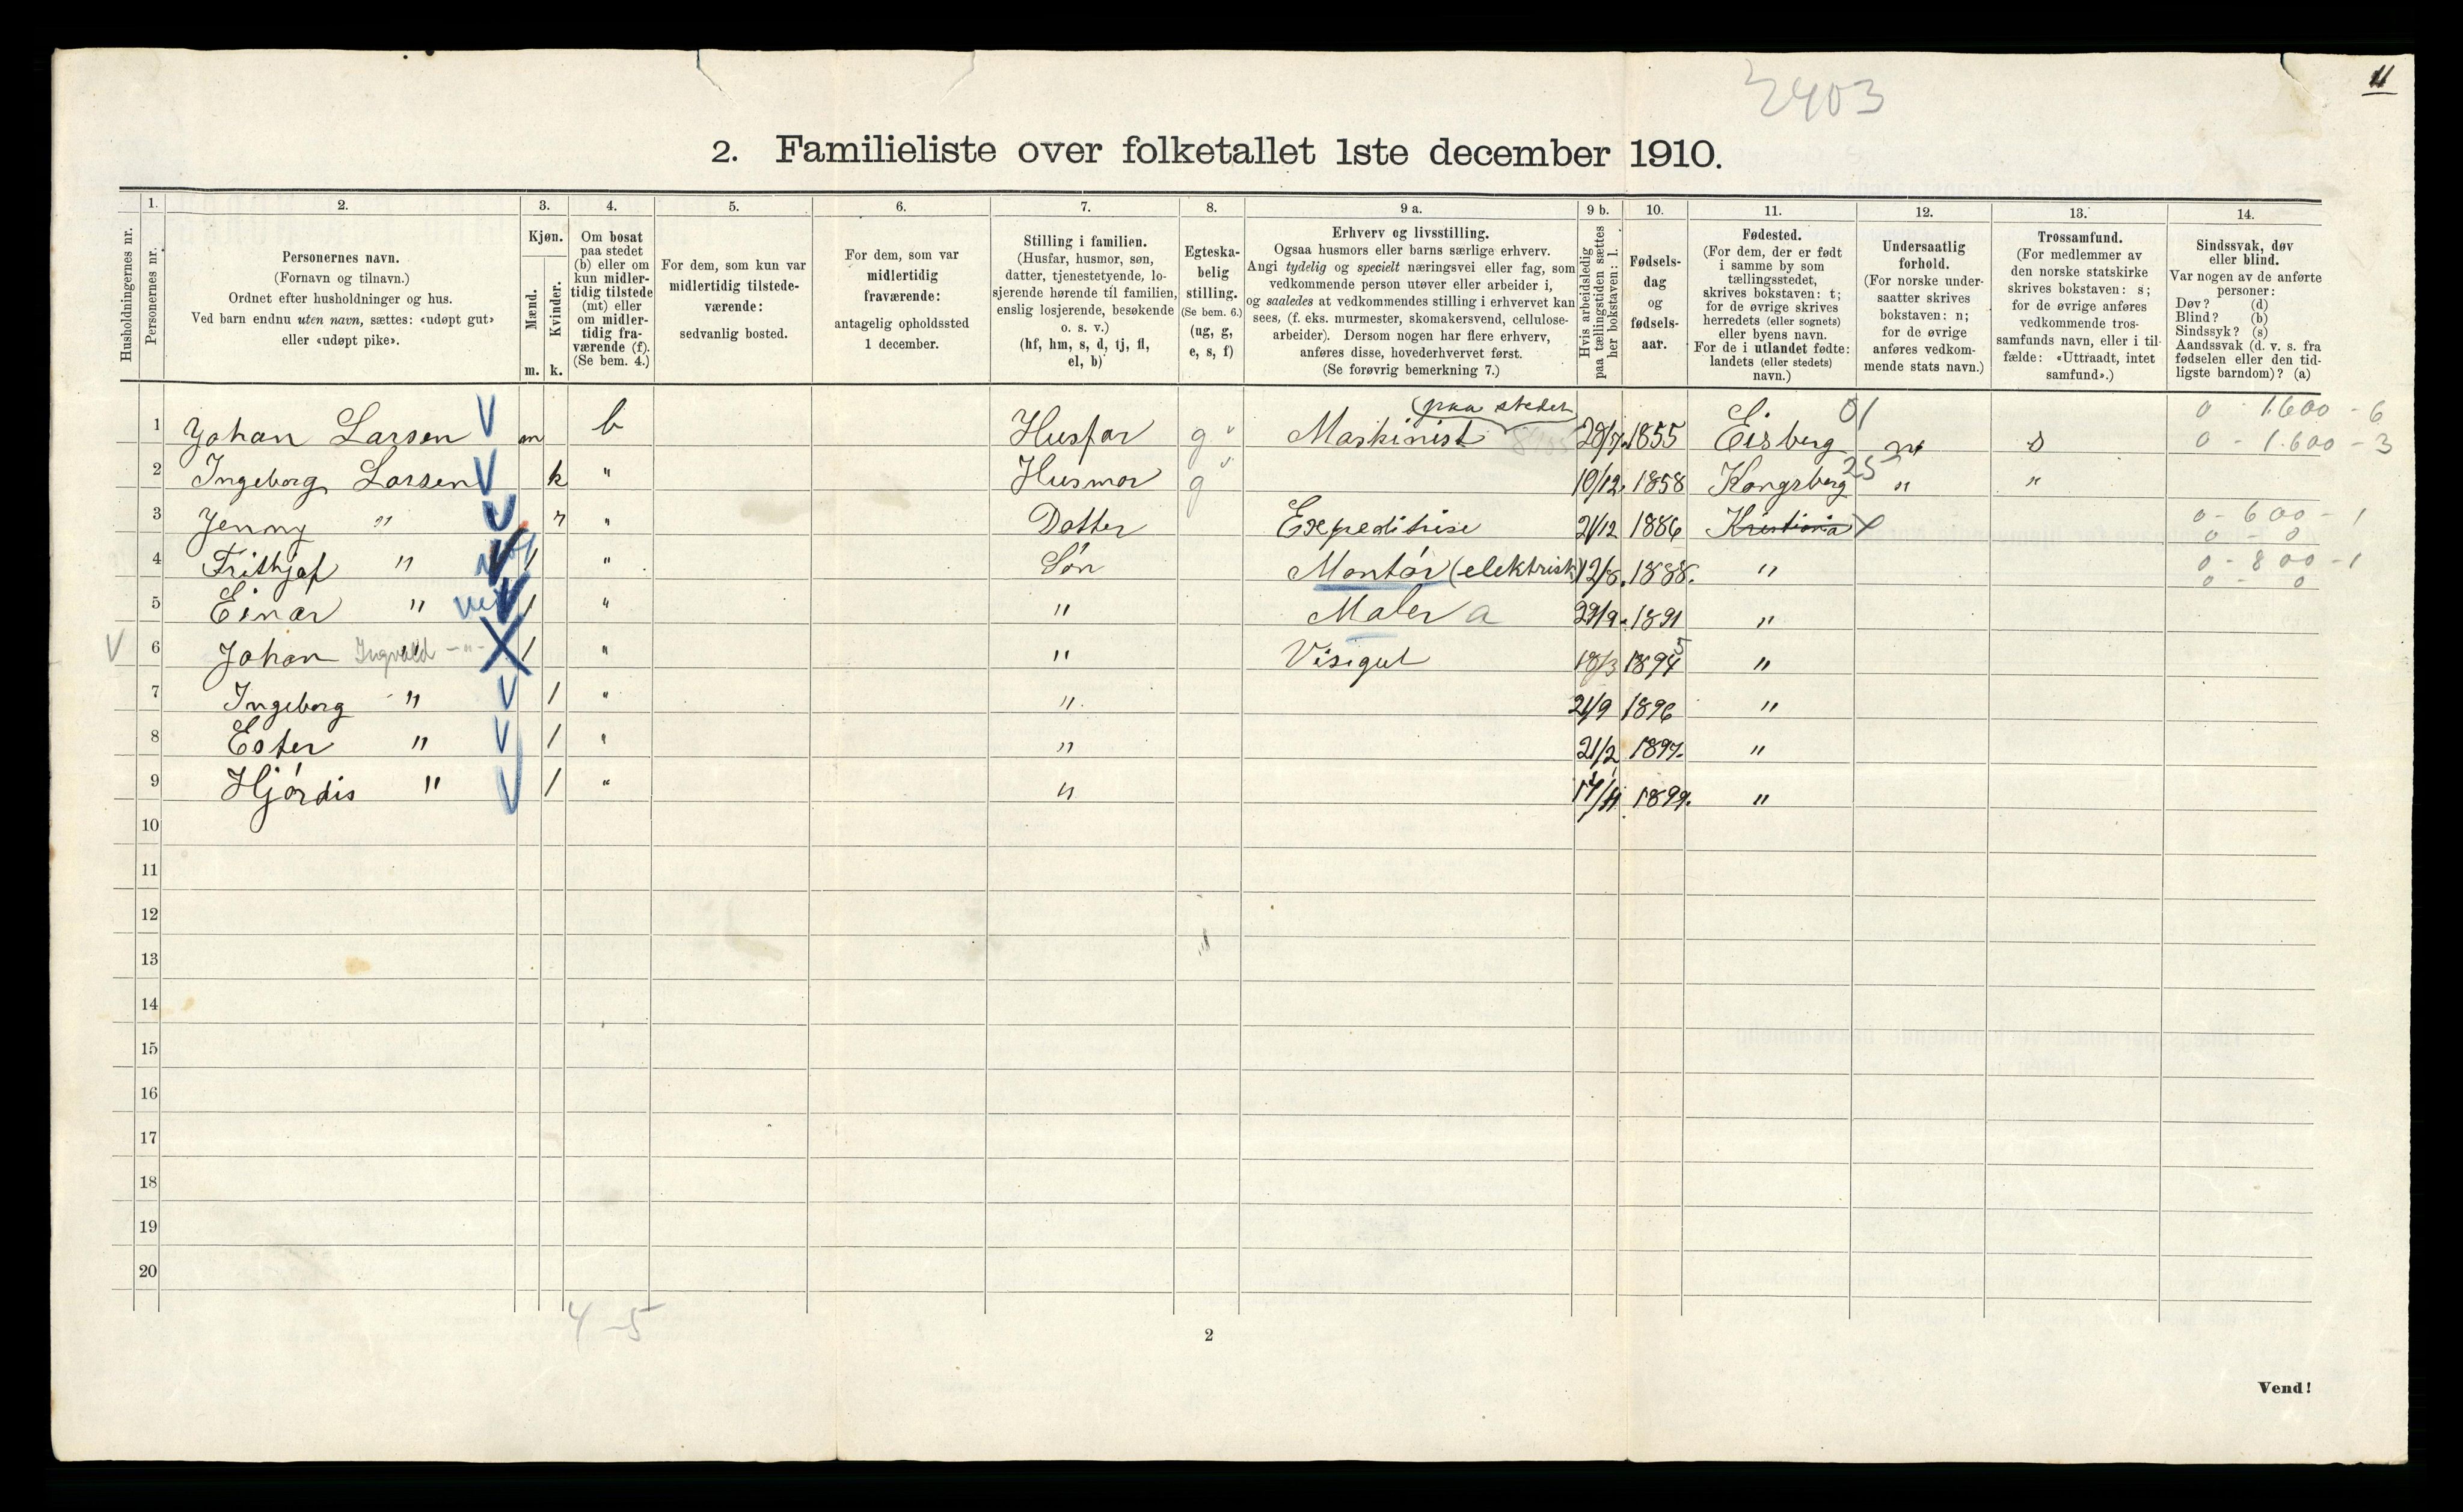 2403
11
2. Familieliste over folketallet 1ste december 1910.
Husholdningernes nr.
1.
Personernes nr.
2.
Personernes navn.
(Fornavn og tilnavn.)
Ordnet efter husholdninger og hus.
Ved barn endnu uten navn, sættes: «udøpt gut»
eller «udøpt pike».
3.
Kjøn.
Mænd.
Kvinder.
m. k.
4.
Om bosat
paa stedet
(b) eller om
kun midler-
tidig tilstede
(mt) eller
om midler-
tidig fra-
værende (f).
(Se bem. 4.)
5.
For dem, som kun var
midlertidig tilstede-
værende:
sedvanlig bosted.
6.
For dem, som var
midlertidig
fraværende:
antagelig opholdssted
1 december.
7.
Stilling i familien.
(Husfar, husmor, søn,
datter, tjenestetyende, lo-
sjerende hørende til familien,
enslig losjerende, besøkende
o. s. v.)
(hf, hm, s, d, tj, fl,
el, b)
8.
Egteska-
belig
stilling.
(Se bem. 6.)
(ug, g,
e, s, f)
9 a.
Erhverv og livsstilling.
Ogsaa husmors eller barns særlige erhverv.
Angi tydelig og specielt næringsvei eller fag, som
vedkommende person utøver eller arbeider i,
og saaledes at vedkommendes stilling i erhvervet kan
sees, (f. eks. murmester, skomakersvend, cellulose-
arbeider). Dersom nogen har flere erhverv,
anføres disse, hovederhvervet først.
(Se forøvrig bemerkning 7.)
9 b.
Hvis arbeidsledig
paa tællingstiden sættes
her bokstaven: l.
10.
Fødsels-
dag
og
fødsels-
aar.
11.
Fødested.
(For dem, der er født
i samme by som
tællingsstedet,
skrives bokstaven: t;
for de øvrige skrives
herredets (eller sognets)
eller byens navn.
For de i utlandet fødte:
landets (eller stedets)
navn.)
12.
Undersaatlig
forhold.
(For norske under-
saatter skrives
bokstaven: n;
for de øvrige
anføres vedkom-
mende stats navn.)
13.
Trossamfund.
(For medlemmer av
den norske statskirke
skrives bokstaven: s;
for de øvrige anføres
vedkommende tros-
samfunds navn, eller i til-
fælde: «Uttraadt, intet
samfund».)
14.
Sindssvak, døv
eller blind.
Var nogen av de anførte
personer:
Døv? (d)
Blind? (b)
Sindssyk? (s)
Aandssvak (d. v. s. fra
fødselen eller den tid-
ligste barndom)? (a)
(paa stedet 01 0 - 1.600 - 6
1 Johan Larsen V m b Husfar g " Maskinist 20/7. 1855 Eisberg n s 0 - 1.600 - 3
2 Ingeborg Larsen V k " Husmor g " 10/12. 1858 Kongsberg 25 " "
3 Jenny " V " Datter Expeditrise 21/12 1886 Kristiania X 0 - 600 - 1
0 - 0
4 Frithjof " V 1 " Søn Montør (elektrisk) 12/8. 1888. " 0 - 800 - 1
0 - 0
5 Einar " V 1 " " Maler a 29/9. 1891 "
V 6 Johan Ingvald - " - X 1 " " Visigut 18/3 1894 5 "
7 Ingeborg " V 1 " " 21/9 1896 "
8 Ester " V 1 " " 21/2 1897. "
9 Hjørdis " V 1 " " 14/11 1899. "
10
11
12
13
14
15
16
17
18
19
20
4 - 5
2
Vend!